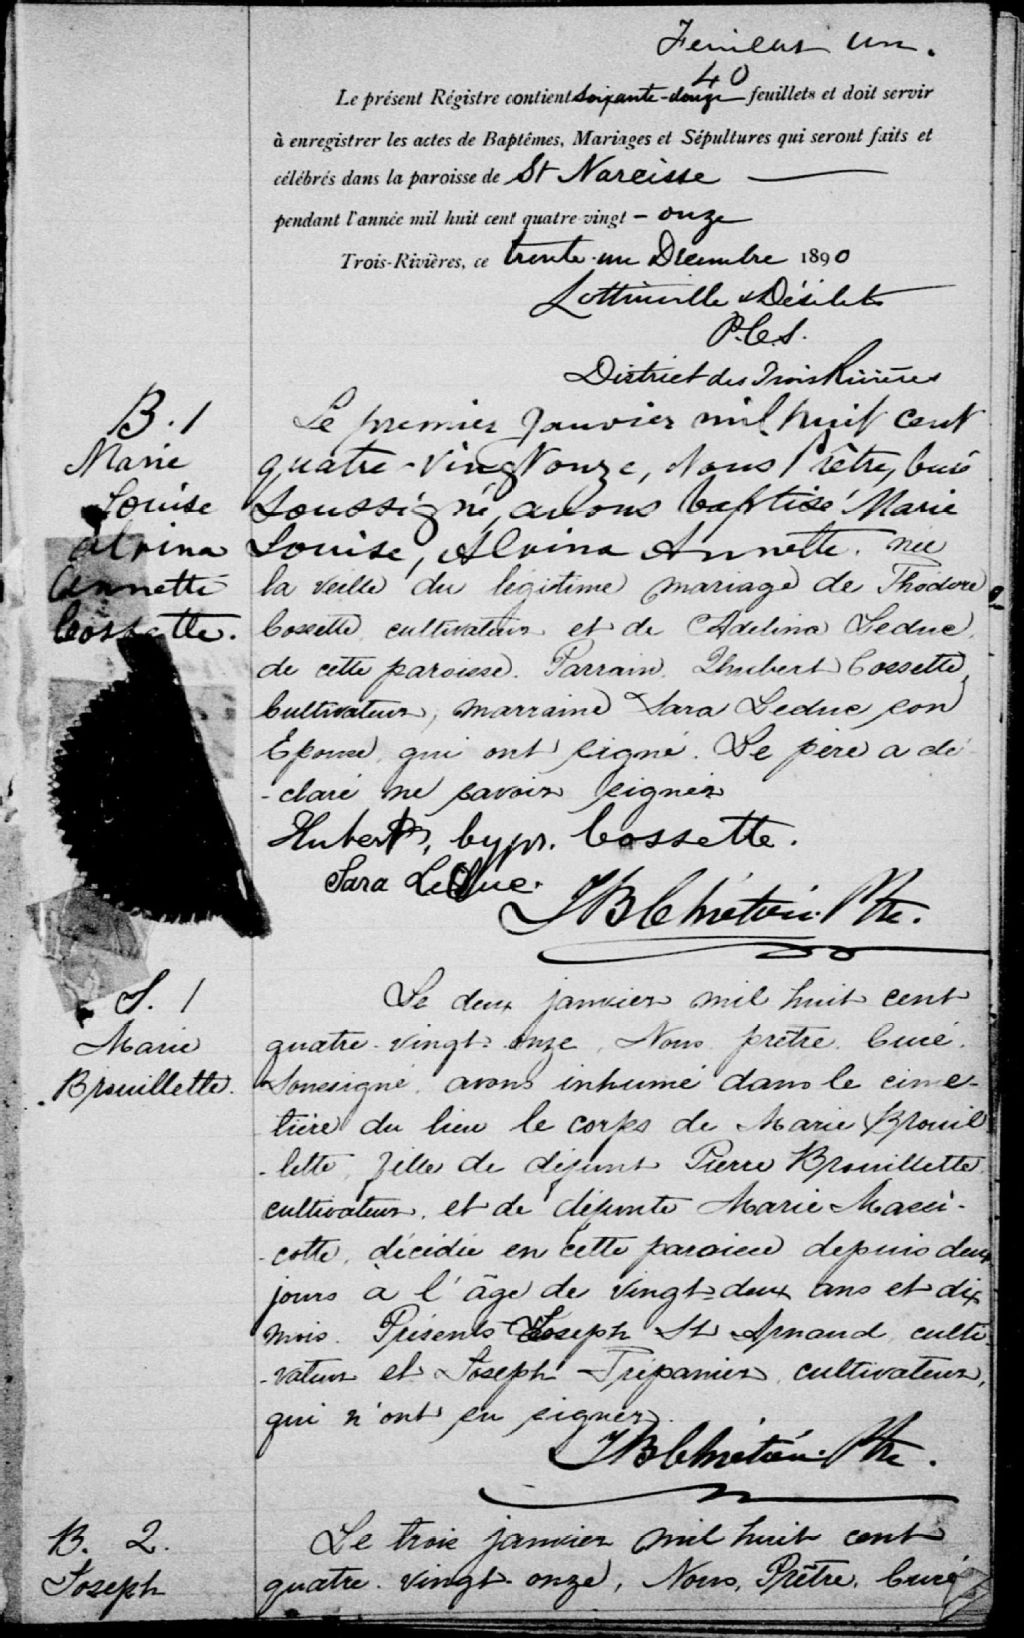 Feuillet un.
40
Le présent Régistre contient soixante-douze feuillets et doit servir
à enregistrer les actes de Baptêmes, Mariages et Sépultures qui seront faits et
célébrés dans la paroisse de St Narcisse
pendant l'année mil huit cent quatre-vingt - onze
Trois-Rivières, ce trente-un Décembre 1890
Lottinville & Désilets
P.C.S.
District des Trois Rivières
B. 1
Marie
Louise
Alvina
Annette
Cossette.
Le premier Janvier mil huit cent
quatre-vingt onze, Nous Prêtre, Curé
Soussigné, avons baptisé Marie
Louise, Alvina Annette. née
la veille du légitime mariage de Thodore
Cossette, cultivateur et de Adelina Leduc,
de cette paroisse. Parrain, Hubert Cossette,
Cultivateur, marraine Sara Leduc son
Epouse, qui ont signé. Le père a dé
-claré ne savoir signer
Hubert, Cossette.
Sara LeDuc.
JBChrétien Ptre.
S. 1
Marie
Brouillette.
Le deux janvier mil huit cent
quatre-vingt-onze, Nous, prêtre, Curé,
Soussigné, avons inhumé dans le cime-
tière du lieu le corps de Marie Brouil
-lette, fille de défunt Pierre Brouillette,
cultivateur, et de défunte Marie Massi-
-cotte, décédée en cette paroisse depuis deux
jours à l'âge de vingt-deux ans et dix
mois. Présents Joseph St Arnaud, culti
-vateur et Joseph Trépanier, cultivateur,
qui n'ont su signer.
JBChrétien Ptre.
B. 2.
Joseph
Le trois janvier mil huit cent
quatre-vingt-onze, Nous, Prêtre, Curé